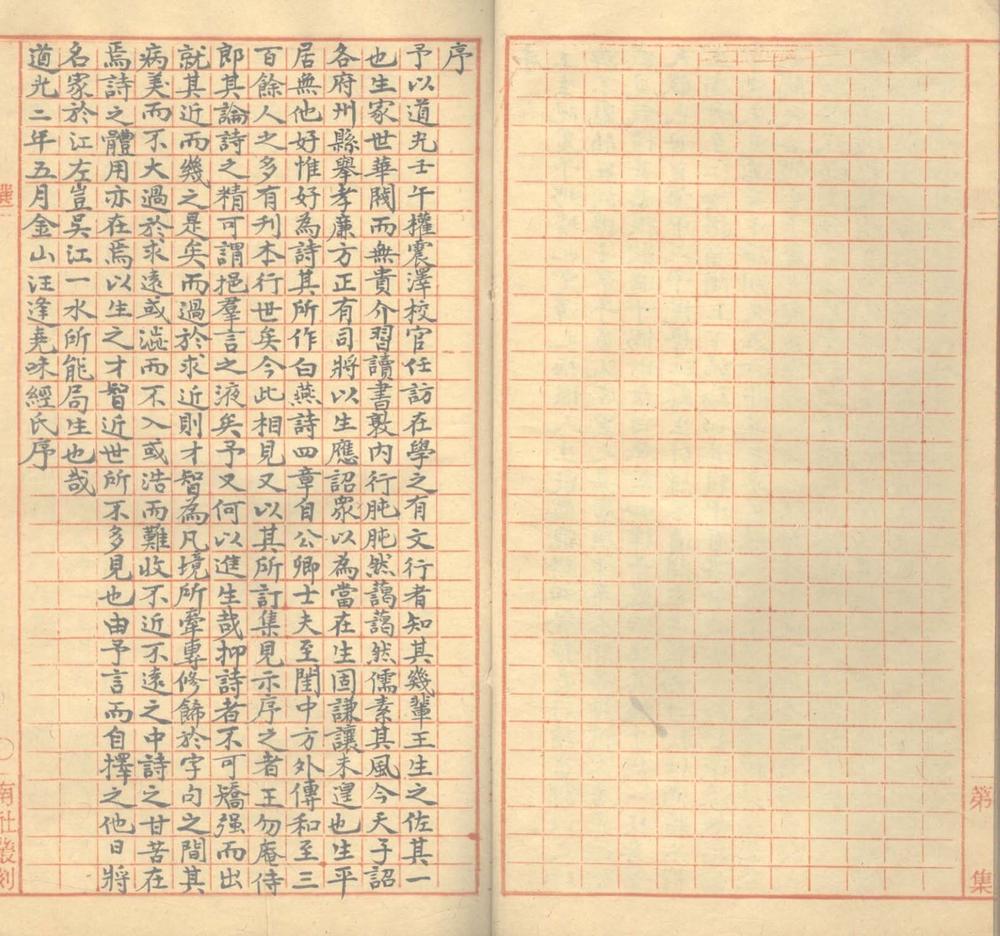 第
集
序
予以道光壬午權震澤校官任訪在學之有文行者知其幾輩王生之佐其一
也生家世華閥而無貴介習讀書敦内行肫肫然藹藹然儒素其風今天子詔
各府州縣舉孝廉方正有司將以生應詔衆以為當在生固謙讓未遑也生平
居無他好惟好為詩其所作白燕詩四章自公卿士夫至閨中方外傳和至三
百餘人之多有刊本行世矣今此相見又以其所訂集見示序之者王勿庵侍
郎其論詩之精可謂挹羣言之液矣予又何以進生哉抑詩者不可矯强而出
就其近而幾之是矣而過於求近則才智為凡境所牽專修飾於字句之間其
病美而不大過於求遠或澁而不入或浩而難收不近不遠之中詩之甘苦在
焉詩之體用亦在焉以生之才智近世所不多見也由予言而自擇之他日將
名家於江左豈吳江一水所能局生也哉
道光二年五月金山汪逢堯味經氏序
選
南社叢刻